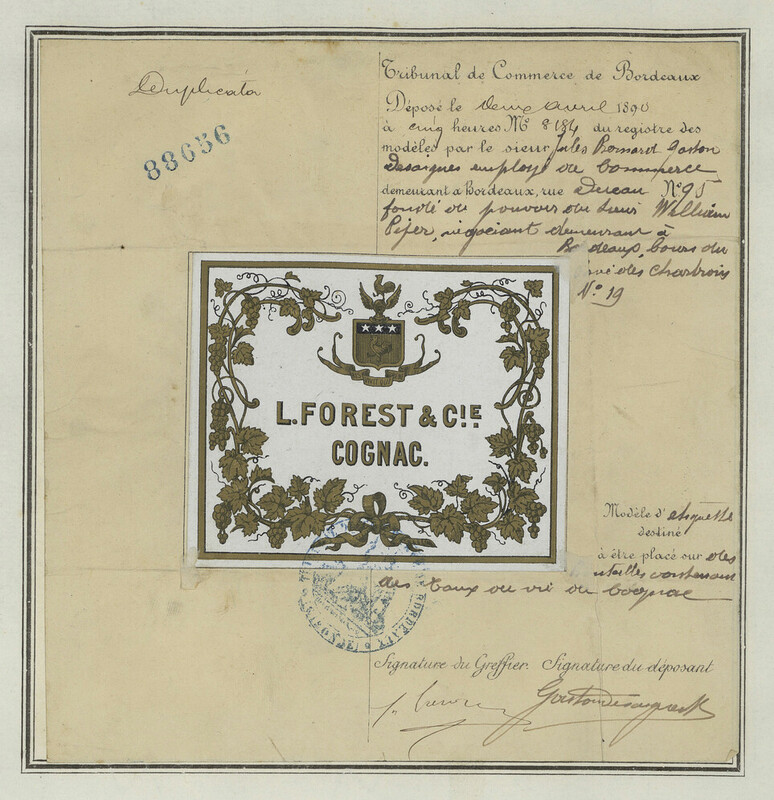 Duplicata
88656
Tribunal de Commerce de Bordeaux
Déposé le deux avril 1890
à cinq heures Mº 8184 du registre des
modèles par le sieur Jules Bernard Gaston
employé de Commerce
demeurant a Bordeaux, rue Nº 95
fondé de pouvoir du sieur William
Pifer, négociant demeurant à
Bordeaux, Cours du
pavé des Chartrons
Nº 19
L. FOREST & CIE
COGNAC.
Modèle d'étiquette
destiné
à être placé sur des
bouteilles contenant
des Eaux de vie de Cognac
BORDEAUX
(GIRONDE)
Signature du Greffier. Signature du déposant